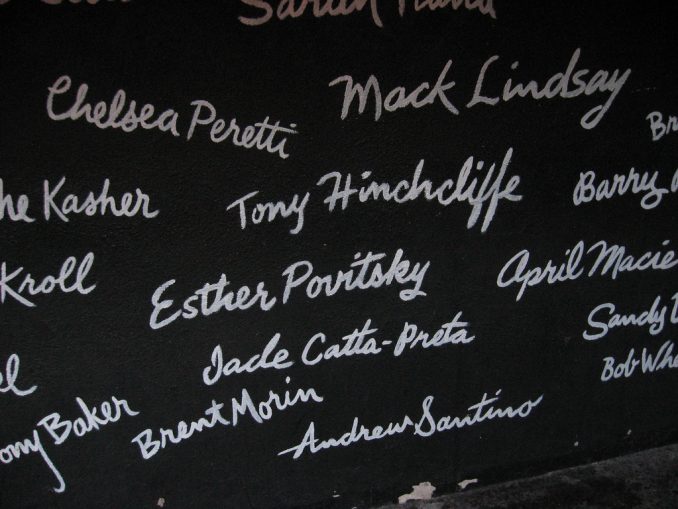 Chelsea Peretti
Mack Lindsay
he Kasher
Tony Hinchcliffe
Barry
Kroll
Esther Povitsky
April Macie
Sandy
el
Jade Catta-Preta
Bob Whe
ony Baker
Brent Morin
Andrew Santino